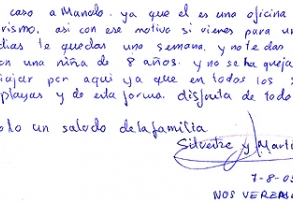 caso a Manolo. ya que el es una oficina
rismo, asi con ese motivo si vienes para un
dias te quedas una semana, y note das
con una niña de 8 años. y no se ha queja
iajar por aqui ya que en todos los
playas y de esta forma. disfruta de todo
un saludo de la familia
Silvestre y Marti
7-8-05
NOS VEREMO